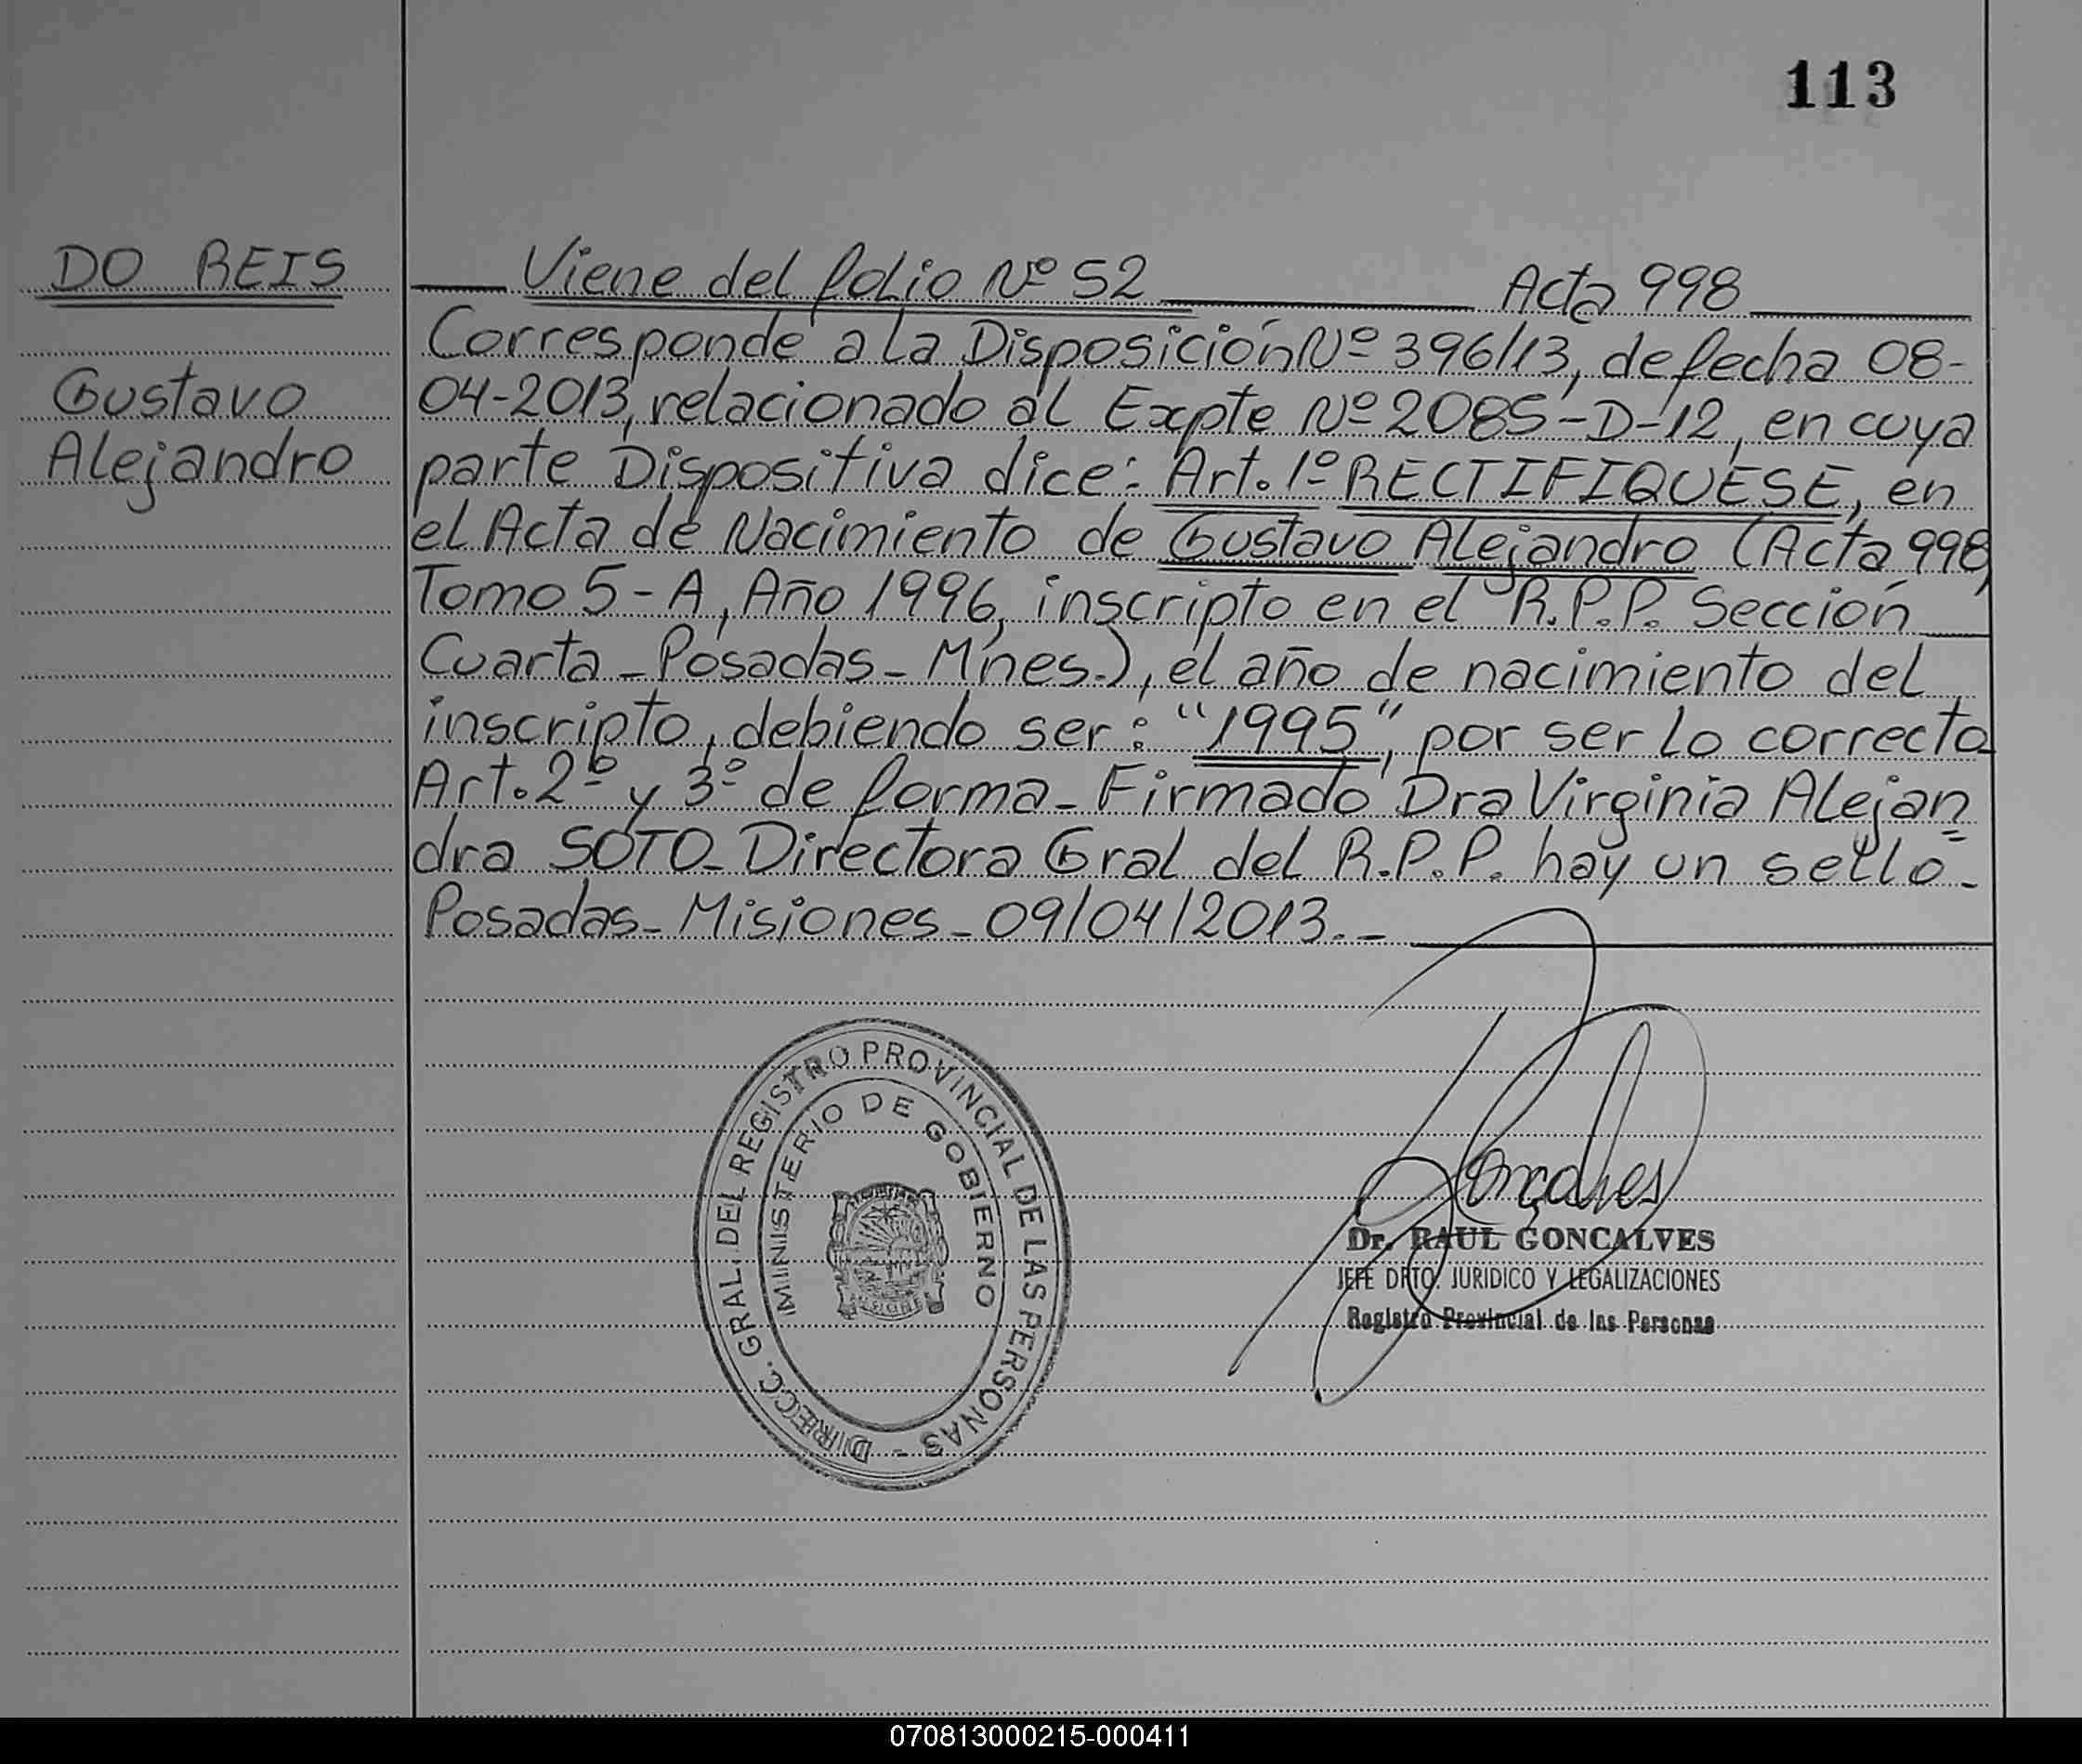 113
DO REIS
Gustavo
Alejandro
Viene del folio Nº 52 Acta 998
Corresponde a la Disposición Nº 396/13, de fecha 08-
04-2013, relacionado al Expte Nº 2085-D-12, en cuya
parte Dispositiva dice: Art. 1º RECTIFIQUESE, en
el Acta de Nacimiento de Gustavo Alejandro (Acta 998,
Tomo 5-A, Año 1996, inscripto en el R.P.P. Sección
Cuarta - Posadas - Mnes.), el año de nacimiento del
inscripto, debiendo ser: "1995", por ser lo correcto
Art. 2º y 3º de forma - Firmado Dra Virginia Alejan
dra SOTO - Directora Gral del R.P.P. hay un sello -
Posadas - Misiones - 09/04/2013.-
DIRECC. GRAL. DEL REGISTRO PROVINCIAL DE LAS PERSONAS -
MINISTERIO DE GOBIERNO
Goncalves
Dr. RAUL GONCALVES
JEFE DPTO. JURIDICO Y LEGALIZACIONES
Registro Provincial de las Personas
070813000215-000411